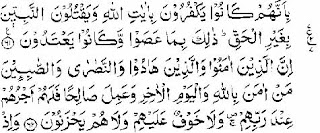 بِاَنَّهُمْ كَانُوْا يَكْفُرُوْنَ بِاٰيٰتِ اللّٰهِ وَيَقْتُلُوْنَ النَّبِيّٖنَ
بِغَيْرِ الْحَقِّ ؕ ذٰلِكَ بِمَا عَصَوْا وَّكَانُوْا يَعْتَدُوْنَ ﴿۶۱﴾ ع
اِنَّ الَّذِيْنَ اٰمَنُوْا وَالَّذِيْنَ هَادُوْا وَالنَّصٰرٰى وَالصّٰبِـِٕيْنَ
مَنْ اٰمَنَ بِاللّٰهِ وَالْيَوْمِ الْاٰخِرِ وَعَمِلَ صَالِحًا فَلَهُمْ اَجْرُهُمْ
عِنْدَ رَبِّهِمْ ۚ وَلَا خَوْفٌ عَلَيْهِمْ وَلَا هُمْ يَحْزَنُوْنَ ﴿۶۲﴾ وَاِذْ